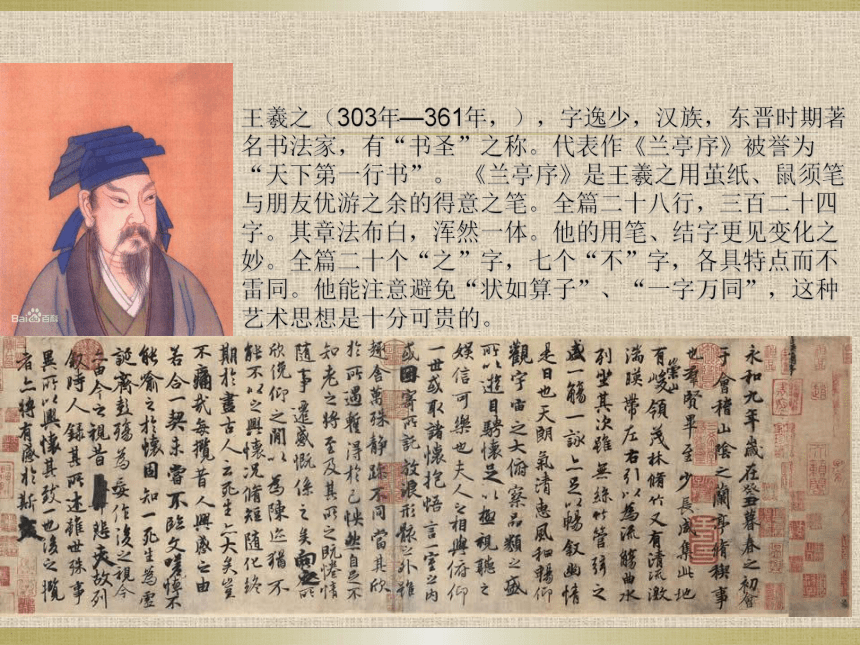 王羲之（303年—361年，），字逸少，汉族，东晋时期著
名书法家，有“书圣”之称。代表作《兰亭序》被誉为
“天下第一行书”。 《兰亭序》是王羲之用茧纸、鼠须笔
与朋友优游之余的得意之笔。全篇二十八行，三百二十四
字。其章法布白，浑然一体。他的用笔、结字更见变化之
妙。全篇二十个“之”字，七个“不”字，各具特点而不
雷同。他能注意避免“状如算子”、“一字万同”，这种
艺术思想是十分可贵的。
Bai百科
永和九年歲在癸丑暮春之初會
于會稽山陰之蘭亭脩稧事
也羣賢畢至少長咸集此地
有崇山峻領茂林脩竹又有清流激
湍暎帶左右引以為流觴曲水
列坐其次雖無絲竹管弦之
盛一觴一詠亦足以暢敘幽情
是日也天朗氣清惠風和暢仰
觀宇宙之大俯察品類之盛
所以遊目騁懷足以極視聽之
娛信可樂也夫人之相與俯仰
一世或取諸懷抱悟言一室之內
或因寄所託放浪形骸之外雖
趣舍萬殊靜躁不同當其欣
於所遇暫得於己怏然自足不
知老之將至及其所之既惓情
隨事遷感慨係之矣向之所
欣俛仰之閒以為陳迹猶不
能不以之興懷況脩短隨化終
期於盡古人云死生亦大矣豈
不痛哉每攬昔人興感之由
若合一契未嘗不臨文嗟悼不
能喻之於懷固知一死生為虛
誕齊彭殤為妄作後之視今
亦由今之視昔悲夫故列
敘時人錄其所述雖世殊事
異所以興懷其致一也後之攬
者亦將有感於斯文